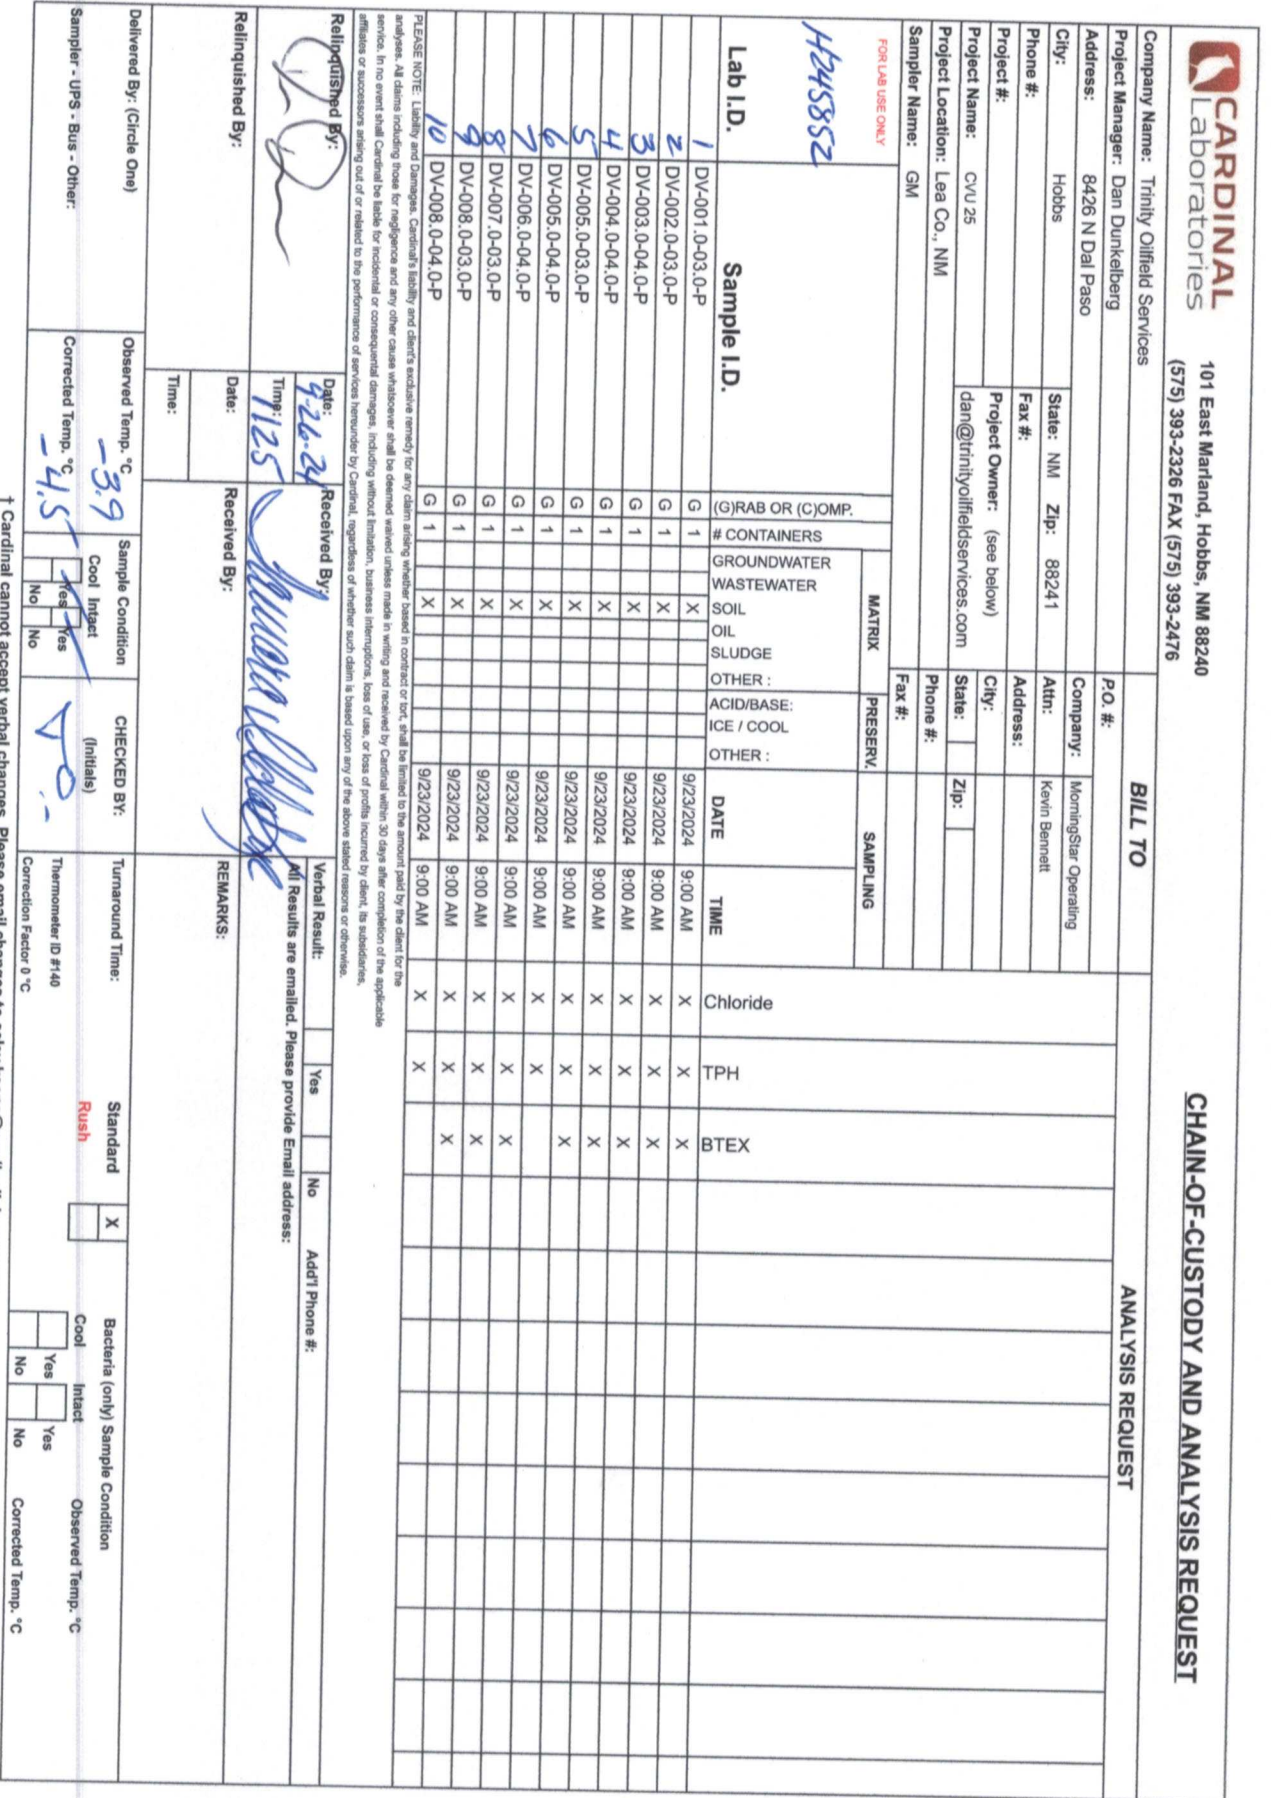 CARDINAL
Laboratories
101 East Marland, Hobbs, NM 88240
(575) 393-2326 FAX (575) 393-2476
CHAIN-OF-CUSTODY AND ANALYSIS REQUEST
Company Name: Trinity Oilfield Services
BILL TO
ANALYSIS REQUEST
Project Manager: Dan Dunkelberg
P.O. #:
Address: 8426 N Dal Paso
Company: MorningStar Operating
City: Hobbs State: NM Zip: 88241
Attn: Kevin Bennett
Phone #: Fax #:
Address:
Project #: Project Owner: (see below)
City:
Project Name: CVU 25 dan@trinityoilfieldservices.com
State: Zip:
Project Location: Lea Co., NM
Phone #:
Sampler Name: GM
Fax #:
FOR LAB USE ONLY
MATRIX PRESERV. SAMPLING
H245852
Lab I.D. Sample I.D. (G)RAB OR (C)OMP. # CONTAINERS GROUNDWATER WASTEWATER SOIL OIL SLUDGE OTHER : ACID/BASE: ICE / COOL OTHER : DATE TIME Chloride TPH BTEX
1 DV-001.0-03.0-P G 1 X 9/23/2024 9:00 AM X X X
2 DV-002.0-03.0-P G 1 X 9/23/2024 9:00 AM X X X
3 DV-003.0-04.0-P G 1 X 9/23/2024 9:00 AM X X X
4 DV-004.0-04.0-P G 1 X 9/23/2024 9:00 AM X X X
5 DV-005.0-03.0-P G 1 X 9/23/2024 9:00 AM X X X
6 DV-005.0-04.0-P G 1 X 9/23/2024 9:00 AM X X
7 DV-006.0-04.0-P G 1 X 9/23/2024 9:00 AM X X X
8 DV-007.0-03.0-P G 1 X 9/23/2024 9:00 AM X X X
9 DV-008.0-03.0-P G 1 X 9/23/2024 9:00 AM X X X
10 DV-008.0-04.0-P G 1 X 9/23/2024 9:00 AM X X
PLEASE NOTE: Liability and Damages. Cardinal's liability and client's exclusive remedy for any claim arising whether based in contract or tort, shall be limited to the amount paid by the client for the
analyses. All claims including those for negligence and any other cause whatsoever shall be deemed waived unless made in writing and received by Cardinal within 30 days after completion of the applicable
service. In no event shall Cardinal be liable for incidental or consequental damages, including without limitation, business interruptions, loss of use, or loss of profits incurred by client, its subsidiaries,
affiliates or successors arising out of or related to the performance of services hereunder by Cardinal, regardless of whether such claim is based upon any of the above stated reasons or otherwise.
Relinquished By:
Date: 9-26-24
Received By:
Verbal Result: Yes No Add'l Phone #:
Time: 1125
All Results are emailed. Please provide Email address:
Relinquished By:
Date:
Received By:
REMARKS:
Time:
Delivered By: (Circle One)
Observed Temp. °C -3.9
Sample Condition
CHECKED BY:
Turnaround Time: Standard X
Bacteria (only) Sample Condition
Cool Intact
(Initials)
Rush
Cool Intact Observed Temp. °C
Sampler - UPS - Bus - Other:
Corrected Temp. °C -4.5
Yes Yes
Thermometer ID #140
Yes Yes
No No
Correction Factor 0 °C
No No Corrected Temp. °C
† Cardinal cannot accept verbal changes. Please email changes to